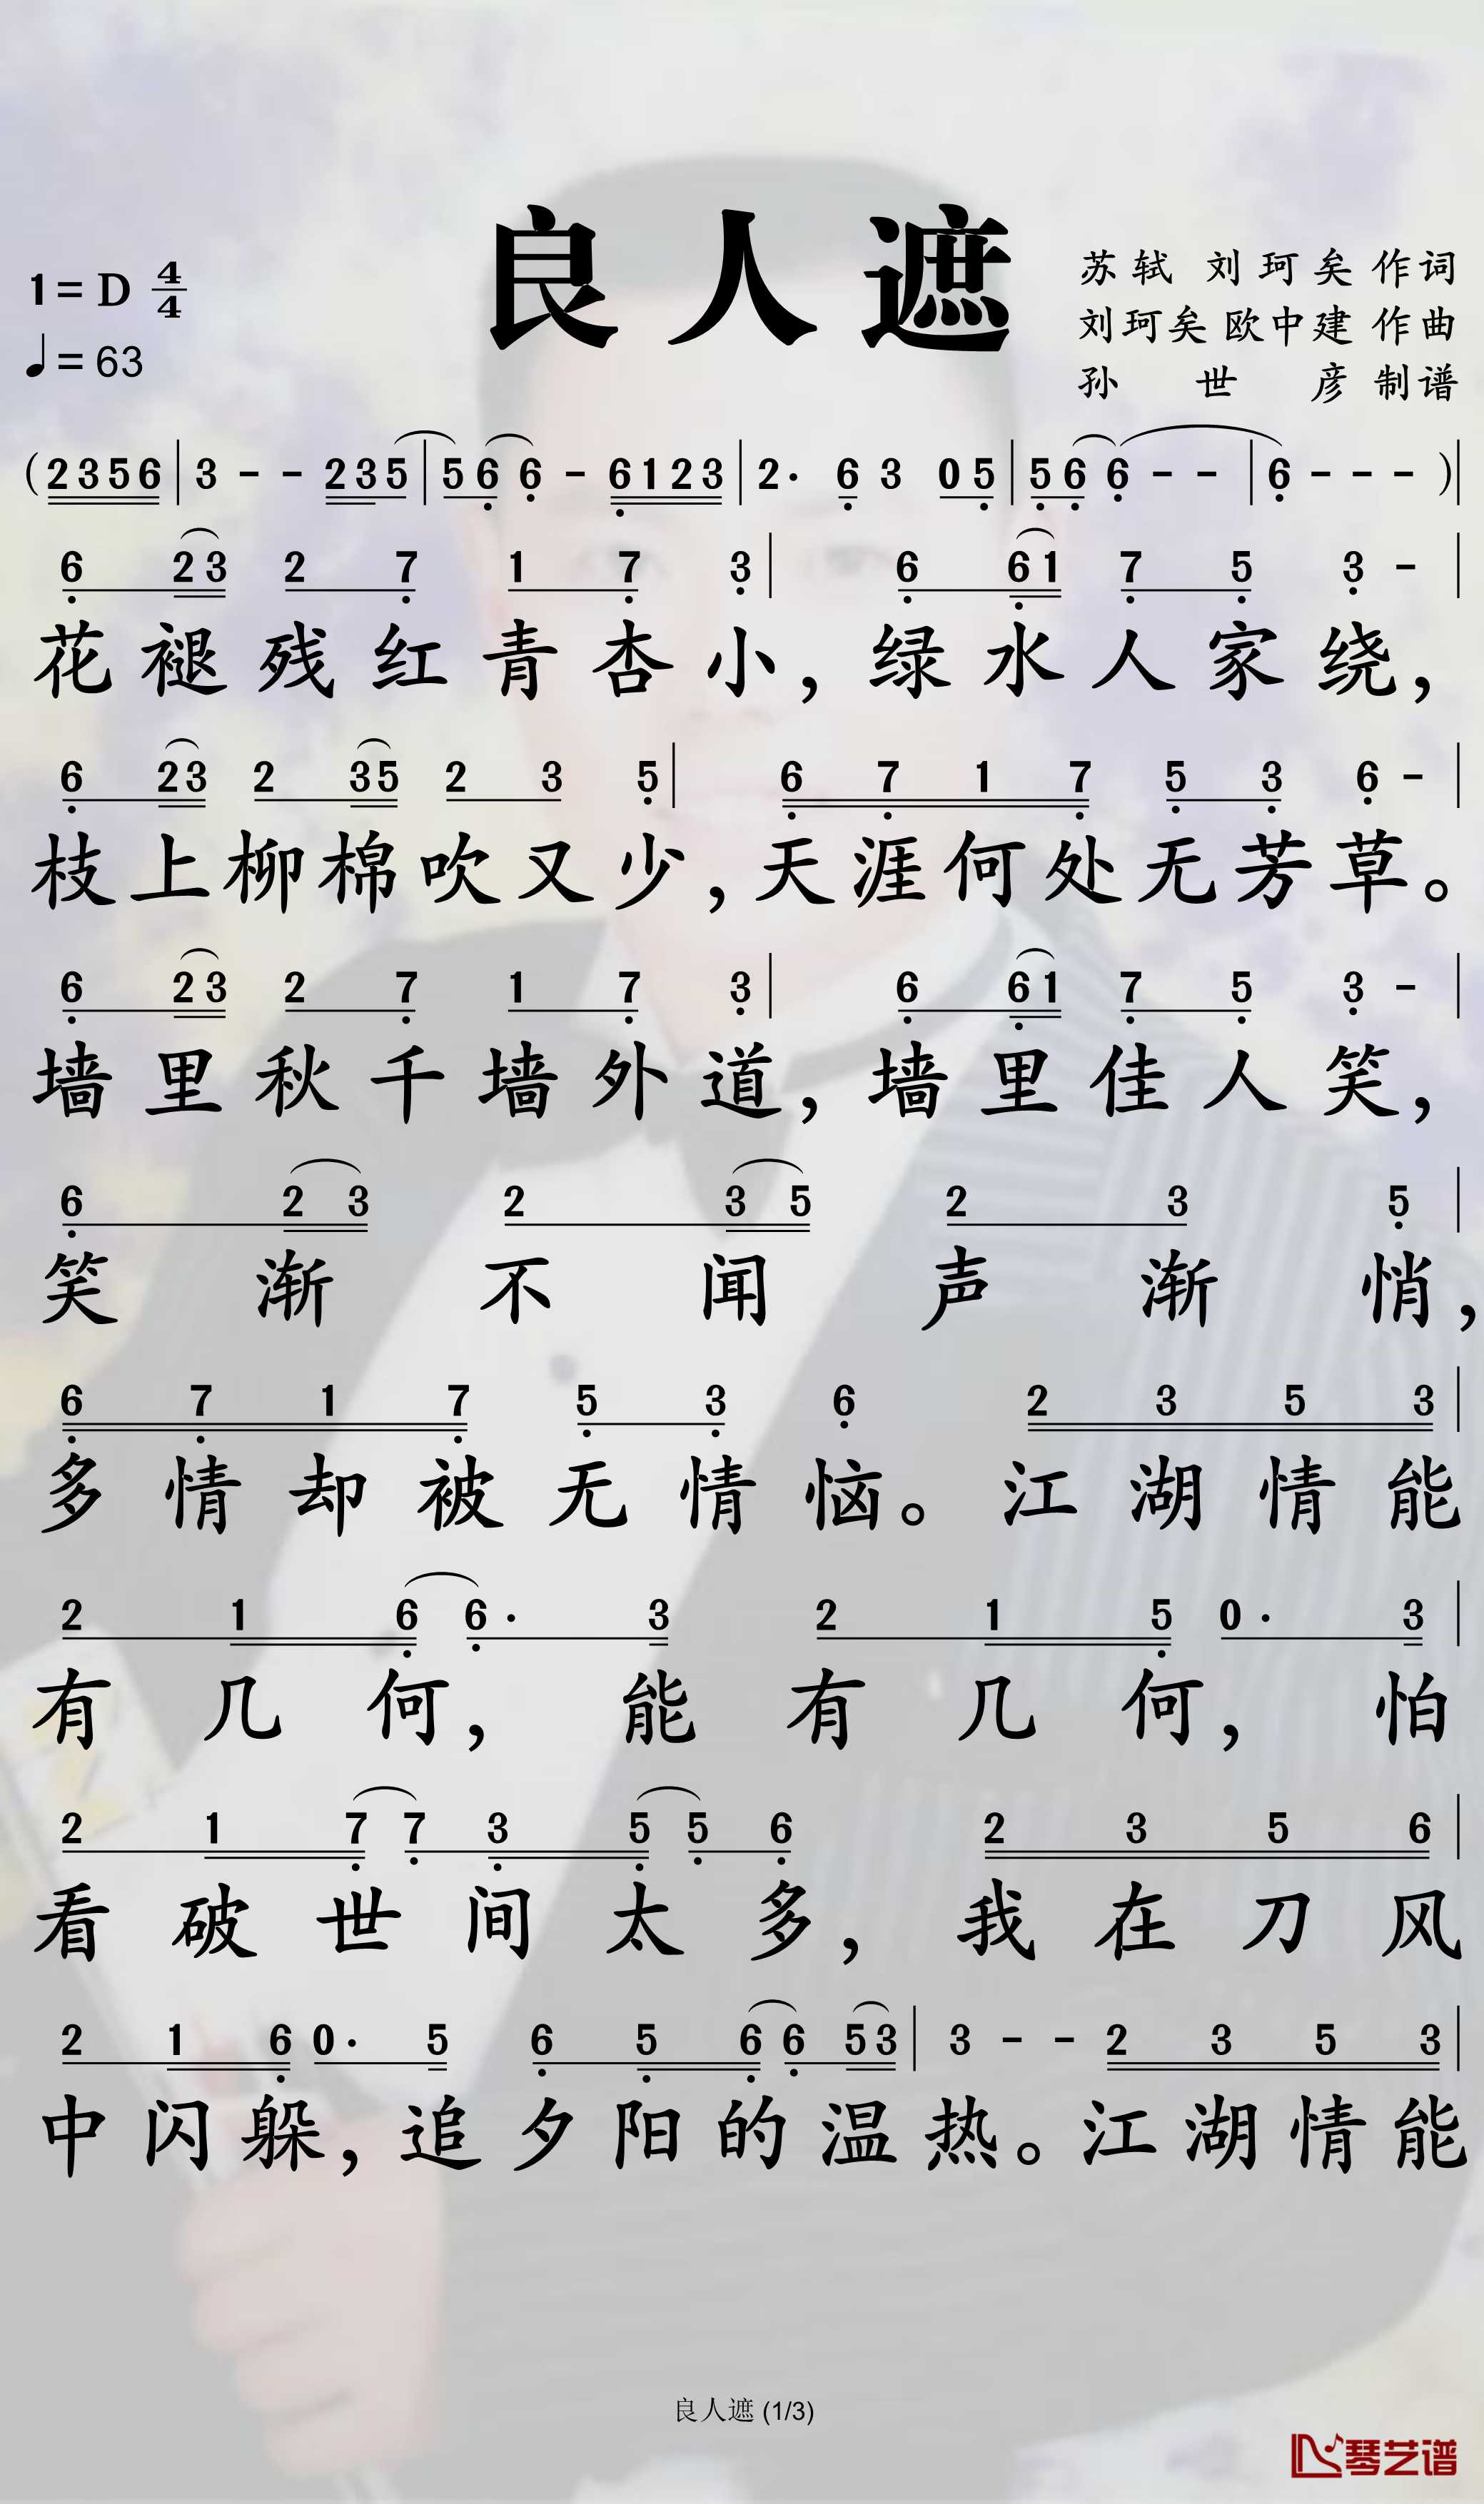 良人遮
1=D 4/4
♩=63
苏轼 刘珂矣 作词
刘珂矣 欧中建 作曲
孙世彦 制谱
(2356|3 - - 235|56 6 - 6123|2. 6 3 05|56 6 - -|6 - - - )|
6 23 2 7 1 7 3| 6 61 7 5 3 -|
花褪残红青杏小，绿水人家绕，
6 23 2 35 2 3 5| 6 7 1 7 5 3 6 -|
枝上柳棉吹又少，天涯何处无芳草。
6 23 2 7 1 7 3| 6 61 7 5 3 -|
墙里秋千墙外道，墙里佳人笑，
6 2 3 2 3 5 2 3 5|
笑渐不闻声渐悄，
6 7 1 7 5 3 6 2 3 5 3|
多情却被无情恼。江湖情能
2 1 6 6. 3 2 1 5 0. 3|
有几何，能有几何，怕
2 1 7 7 3 5 5 6 2 3 5 6|
看破世间太多，我在刀风
2 1 6 0. 5 6 5 6 6 53|3 - - 2 3 5 3|
中闪躲，追夕阳的温热。江湖情能
良人遮 (1/3)
琴艺谱